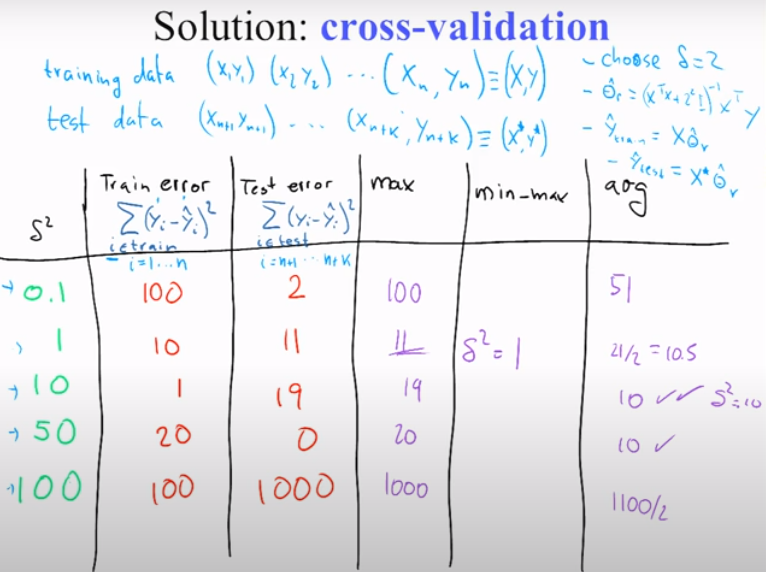 Solution: cross-validation
training data (X₁Y₁) (X₂Y₂) ... (Xₙ, Yₙ) ≡ (X,Y)
test data (Xₙ₊₁Yₙ₊₁) ... (Xₙ₊ₖ, Yₙ₊ₖ) ≡ (X*,Y*)
- choose δ=2
- θ̂ᵣ = (XᵀX+2²I)⁻¹XᵀY
- Ŷtrain = Xθ̂ᵣ
- Ŷtest = X*θ̂ᵣ
δ² Train error Test error max min-max avg
∑(Yᵢ-Ŷᵢ)² ∑(Yᵢ-Ŷᵢ)²
i∈train i∈test
i=1...n i=n+1 ... n+k
→ 0.1 100 2 100 51
→ 1 10 11 11 δ²=1 21/2 = 10.5
→ 10 1 19 19 10 ✓✓ δ²=10
→ 50 20 0 20 10 ✓
→ 100 100 1000 1000 1100/2